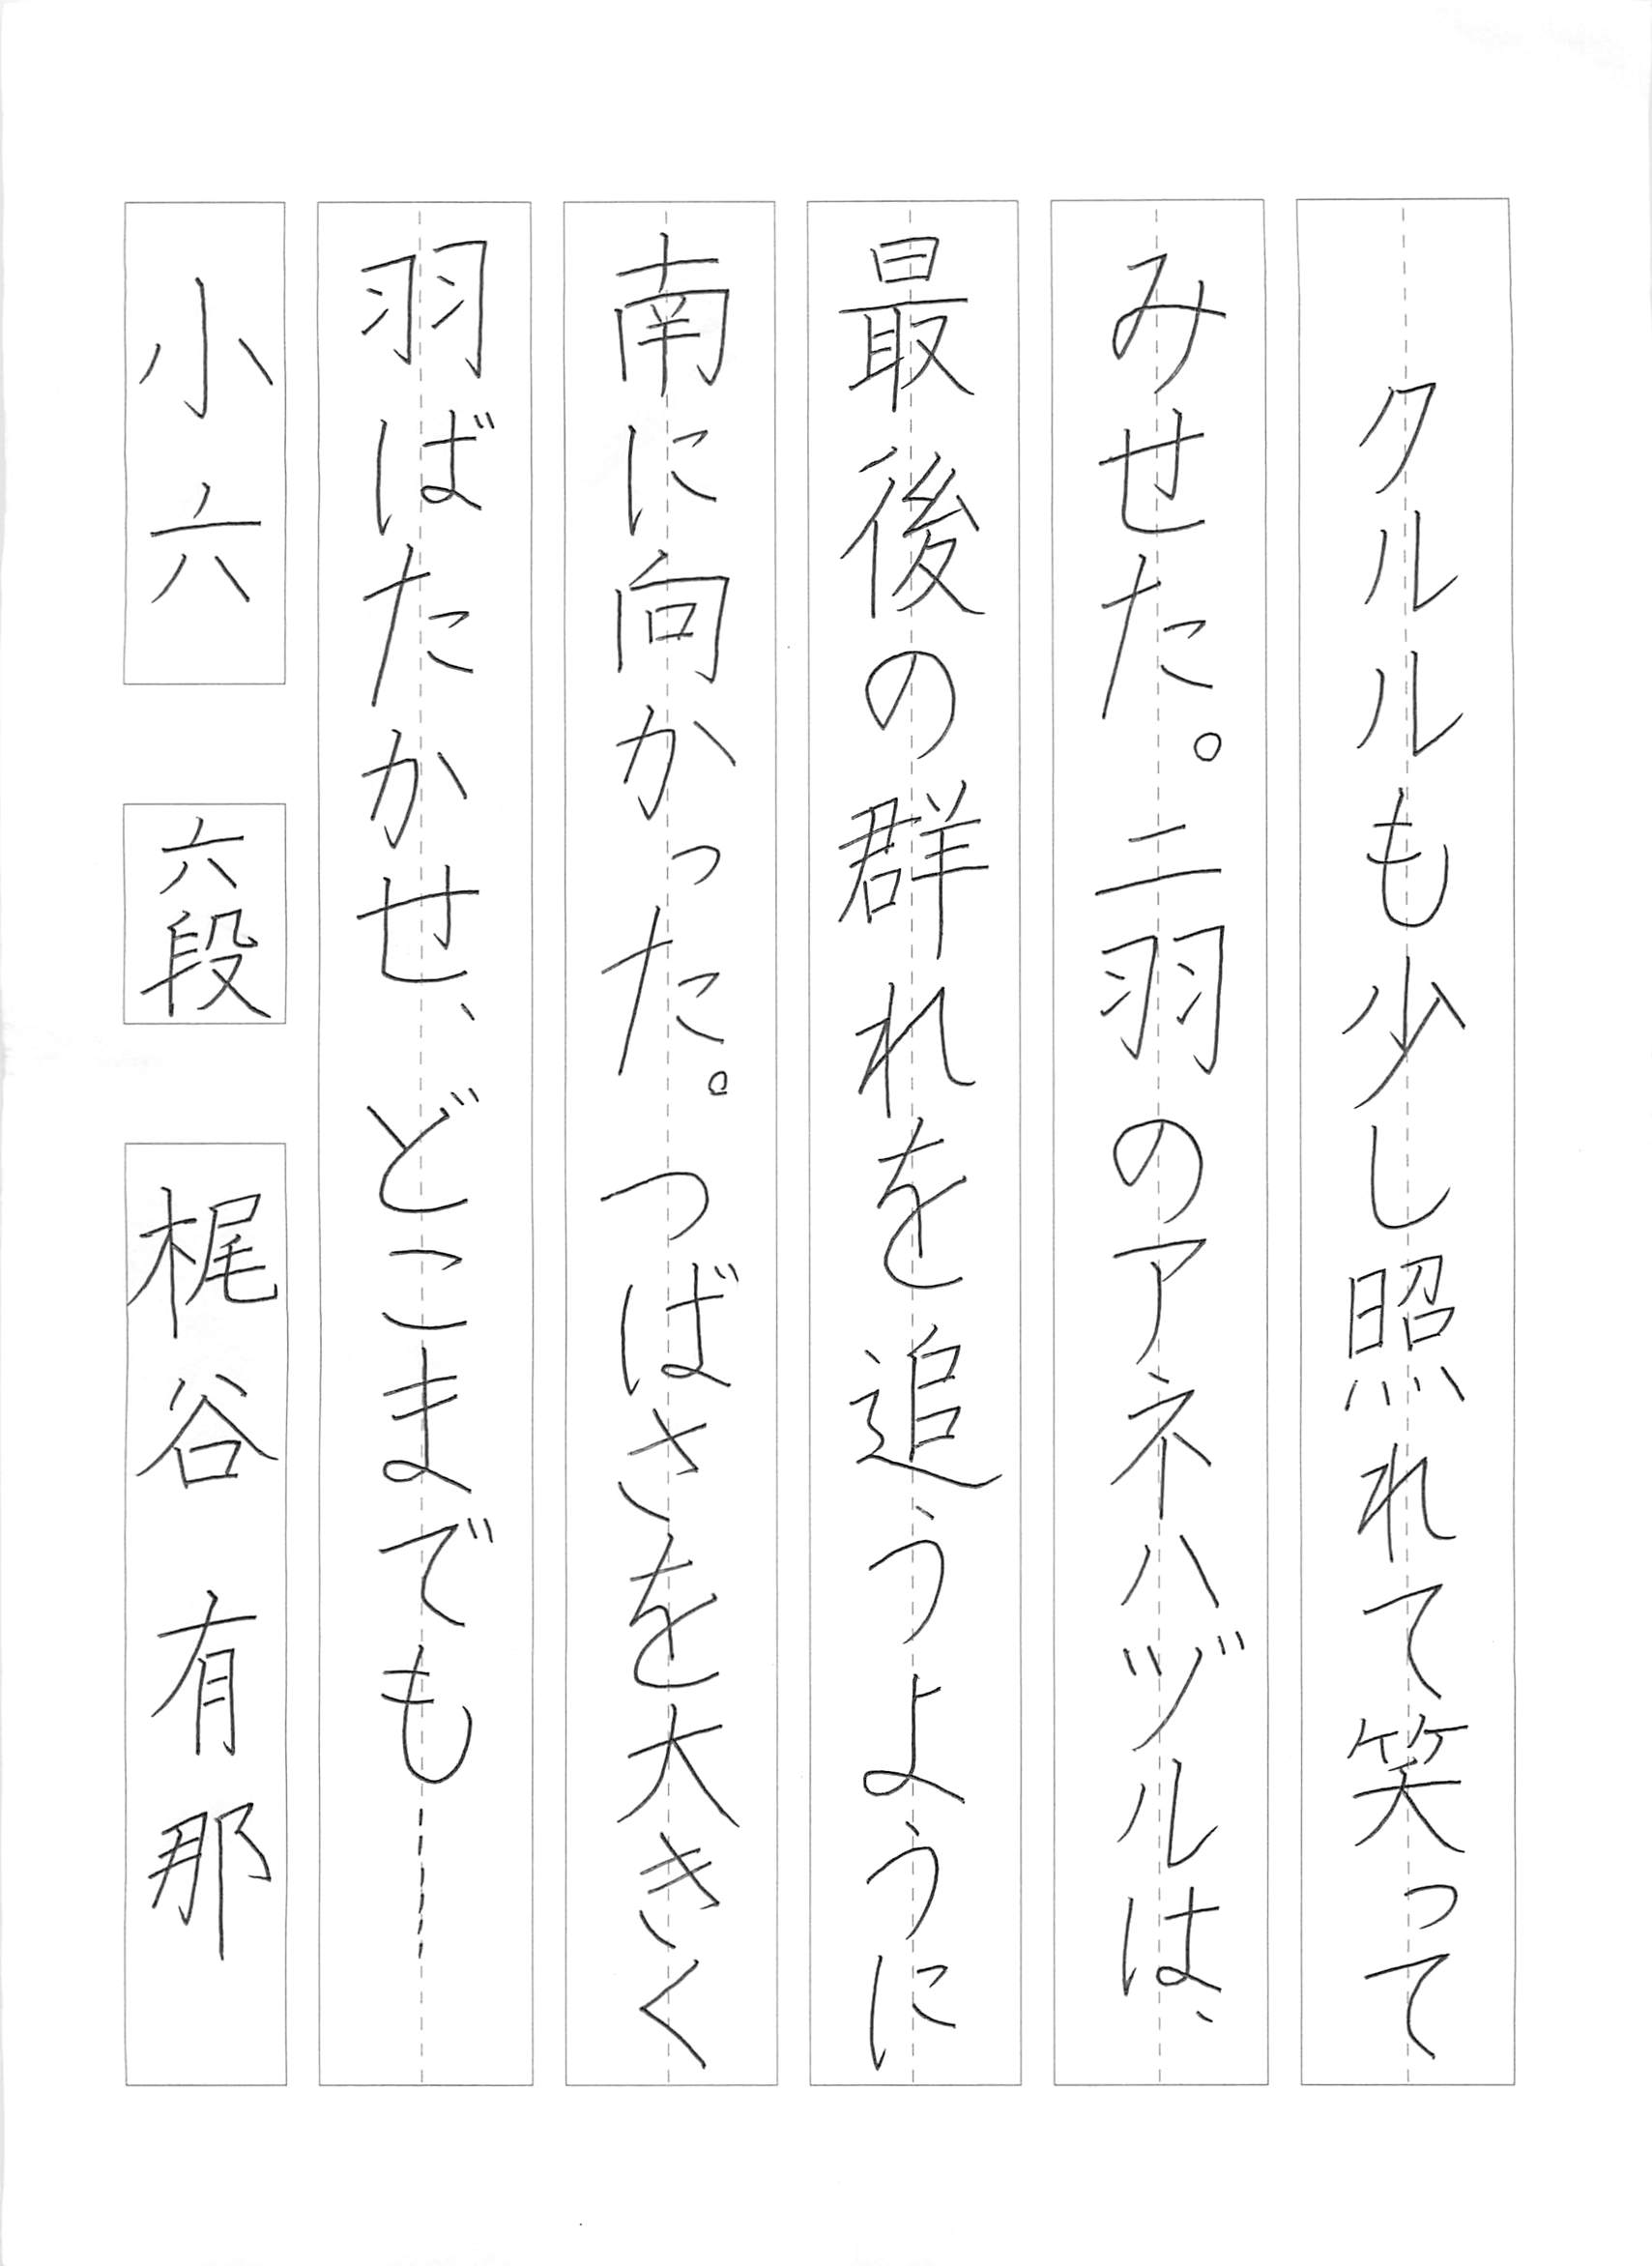 クルルも少し照れて笑って
みせた。二羽のアネハヅルは、
最後の群れを追うように
南に向かった。つばさを大きく
羽ばたかせ、どこまでも……
小六 六段 梶谷有那